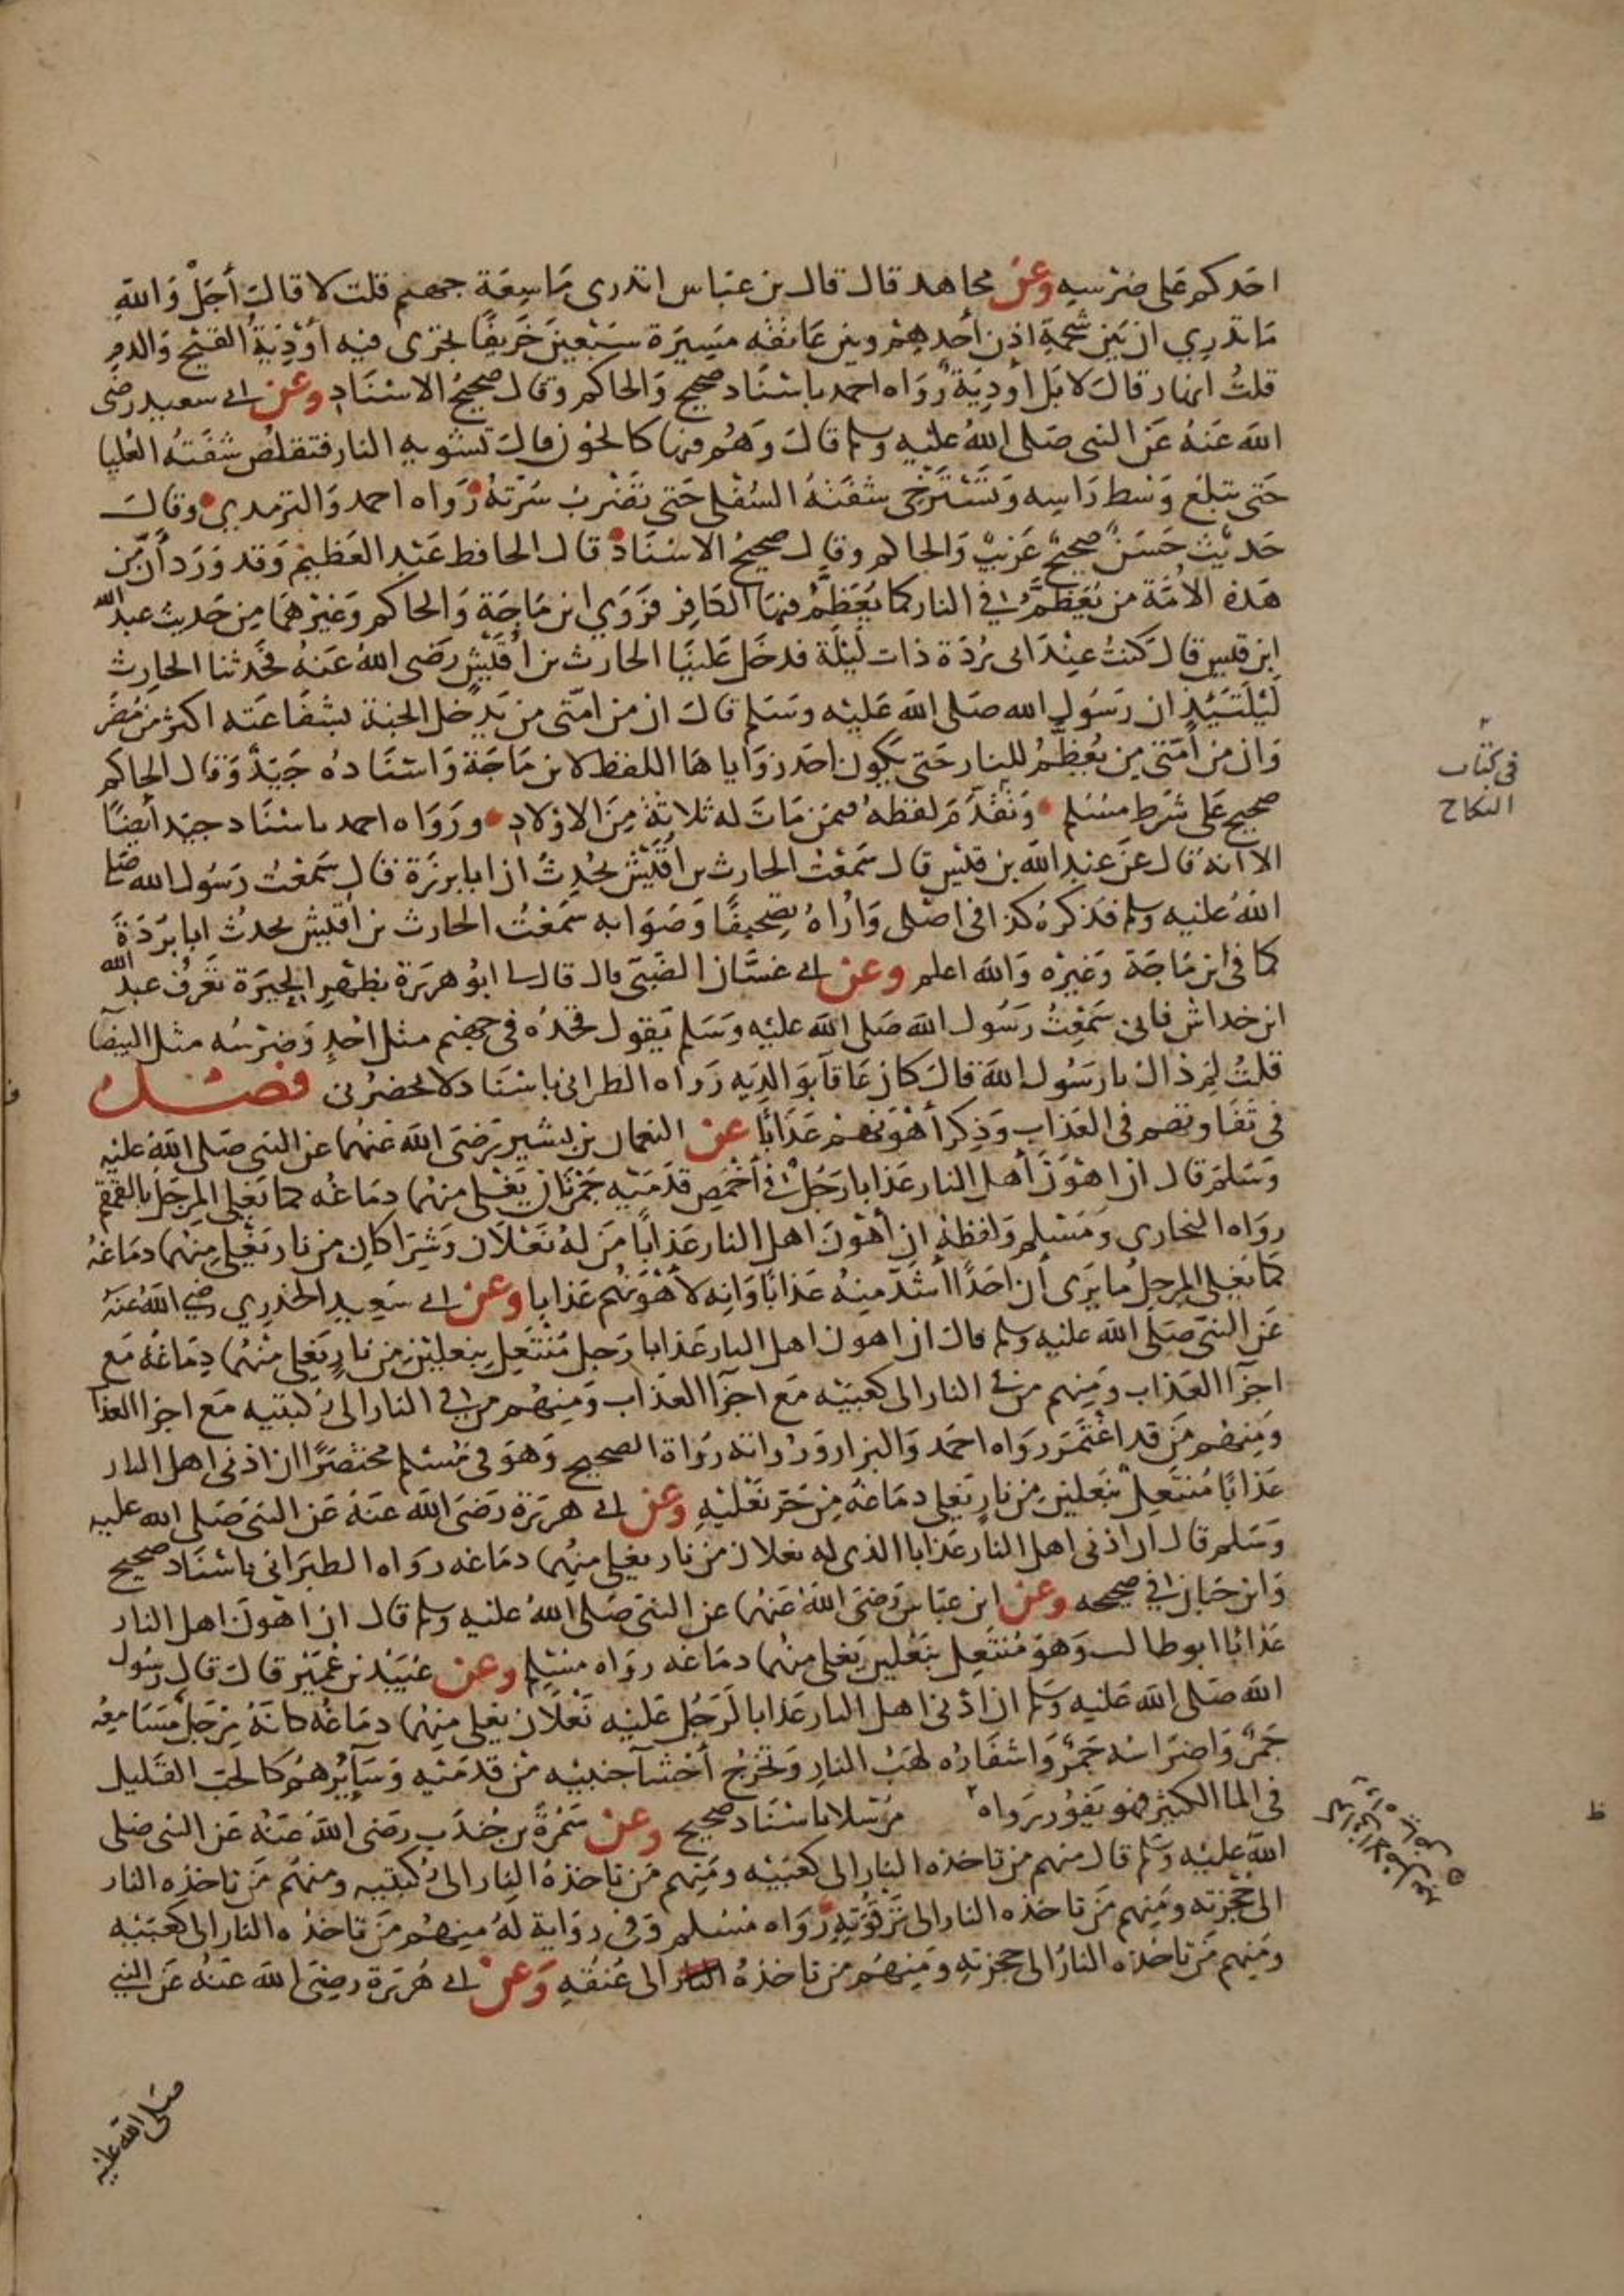 احدكم على ضرسه وعن مجاهد قال قال بن عباس اتدرى ما سعة جهنم قلت لا قال أجل والله
ما تدري ان بين شحمة اذن أحدهم وبين عاتقه مسيرة سبعين خريفا تجرى فيه أودية القيح والدم
قلت انهار قال لا بل أودية رواه احمد باسناد صحيح والحاكم وقال صحيح الاسناد وعن ابي سعيد رضى
الله عنه عن النبى صلى الله عليه وسلم قال وهم فيها كالحون قال تشويه النار فتقلص شفته العليا
حتى تبلغ وسط راسه وتسترخى شفته السفلى حتى تضرب سرته رواه احمد والترمدي وقال
حديث حسن صحيح غريب والحاكم وقال صحيح الاسناد قال الحافظ عبد العظيم وقد ورد أن من
هذه الامة من يعظم في النار كما يعظم فيها الكافر فروي ابن ماجة والحاكم وغيرهما من حديث عبد الله
ابن قيس قال كنت عند ابى بردة ذات ليلة فدخل علينا الحارث بن اقيش رضى الله عنه فحدثنا الحارث
ليلتئذ ان رسول الله صلى الله عليه وسلم قال ان من امتى من يدخل الجنة بشفاعته اكثر من مضر
وان من أمتى من يعظم للنار حتى يكون احد زواياها اللفظ لابن ماجة واسناده جيد وقال الحاكم
صحيح على شرط مسلم وتقدم لفظه فيمن مات له ثلاثة من الاولاد ورواه احمد باسناد جيد أيضا
الا انه قال عن عبد الله بن قيس قال سمعت الحارث بن اقيش يحدث ان ابا برزة قال سمعت رسول الله صلى
الله عليه وسلم فذكره كذا فى اصلى واراه تصحيفا وصوابه سمعت الحارث بن اقيش يحدث ابا بردة
كما فى ابن ماجة وغيره والله اعلم وعن ابي غسان الضبى قال قال لى ابو هريرة بظهر الحيرة تعرف عبد الله
ابن خداش فانى سمعت رسول الله صلى الله عليه وسلم يقول فخذه فى جهنم مثل احد وضرسه مثل البيضا
قلت لم ذاك يا رسول الله قال كان عاقا بوالديه رواه الطبرانى باسناد لا يحضرنى فصل
فى تفاوتهم فى العذاب وذكر أهونهم عذابا عن النعمان بن بشير رضى الله عنهما عن النبى صلى الله عليه
وسلم قال ان اهون أهل النار عذابا رجل في أخمص قدميه جمرتان يغلى منهما دماغه كما يغلى المرجل بالقمقم
رواه البخارى ومسلم ولفظه ان أهون اهل النار عذابا من له نعلان وشراكان من نار يغلى منهما دماغه
كما يغلى المرجل ما يرى أن احدا أشد منه عذابا وانه لأهونهم عذابا وعن ابي سعيد الخدري رضي الله عنه
عن النبى صلى الله عليه وسلم قال ان اهون اهل النار عذابا رجل منتعل بنعلين من نار يغلى منهما دماغه مع
اجزا العذاب ومنهم من في النار الى كعبيه مع اجزا العذاب ومنهم من في النار الى ركبتيه مع اجزا العذا
ومنهم من قد اغتمر رواه احمد والبزار ورواته رواة الصحيح وهو فى مسلم مختصرا ان اذنى اهل النار
عذابا منتعل بنعلين من نار يغلى دماغه من حر نعليه وعن ابي هريرة رضى الله عنه عن النبى صلى الله عليه
وسلم قال ان اذنى اهل النار عذابا الذى له نعلان من نار يغلى منهما دماغه رواه الطبرانى باسناد صحيح
وابن حبان في صحيحه وعن ابن عباس رضى الله عنهما عن النبى صلى الله عليه وسلم قال ان اهون اهل النار
عذابا ابو طالب وهو منتعل بنعلين يغلى منهما دماغه رواه مسلم وعن عبيد بن عمير قال قال رسول
الله صلى الله عليه وسلم ان اذنى اهل النار عذابا لرجل عليه نعلان يغلى منهما دماغه كانه مرجل مسامعه
جمر واضراسه جمر واشفاره لهب النار وتخرج أحشا جنبيه من قدميه وسايرهم كالحب القليل
فى الما الكثير فهو يفور رواه مرسلا باسناد صحيح وعن سمرة بن جندب رضى الله عنه عن النبى صلى
الله عليه وسلم قال منهم من تاخذه النار الى كعبيه ومنهم من تاخذه النار الى ركبتيه ومنهم من تاخذه النار
الى حجزته ومنهم من تاخذه النار الى ترقوته رواه مسلم وفى رواية له منهم من تاخذه النار الى كعبيه
ومنهم من تاخذه النار الى حجزته ومنهم من تاخذه النار الى عنقه وعن ابي هريرة رضى الله عنه عن النبي
صلى الله عليه
فى كتاب
النكاح
ظ